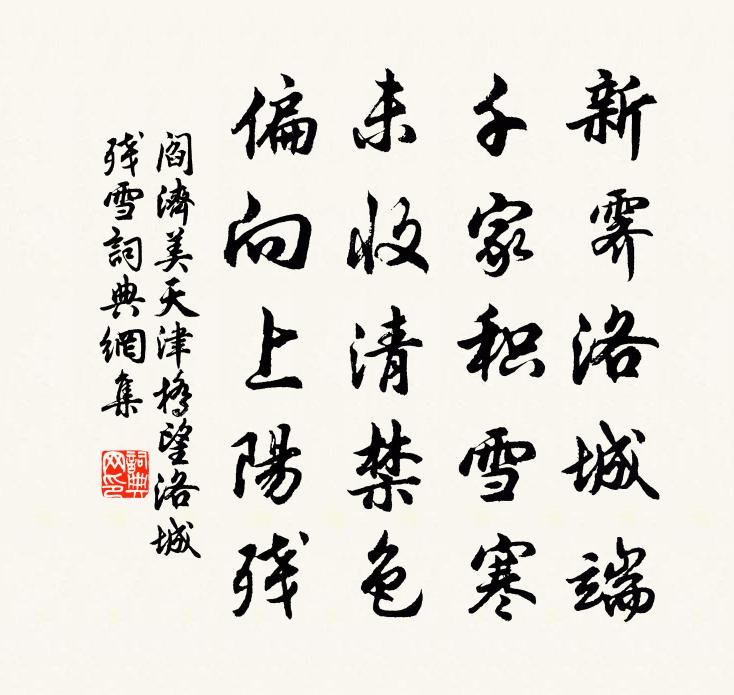 新霽洛城端
千家积雪寒
未收清禁色
偏向上陽残
閻濟美天津橋望洛城
残雪詞典網集
詞典
网印